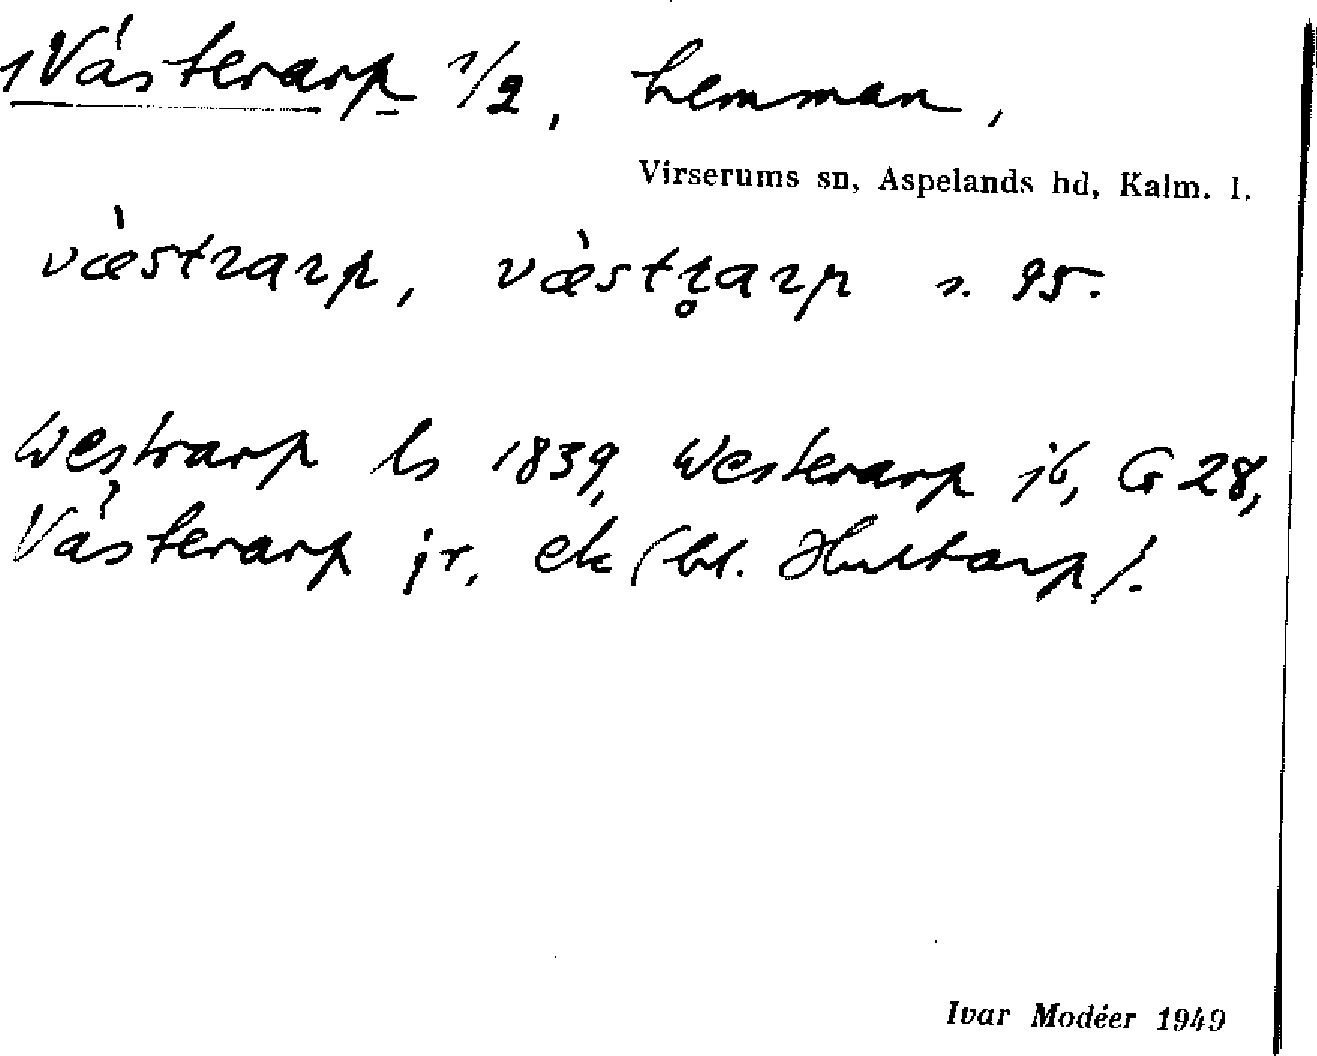 1 Västerarp 1/2, hemman,
Virserums sn, Aspelands hd, Kalm. l.
væ̀strarp, væ̀str̥arp s. 95.
Westrarp ls 1839, Westerarp ib, G 28,
Västerarp jr, ek (bl. Hultarp).
Ivar Modéer 1949